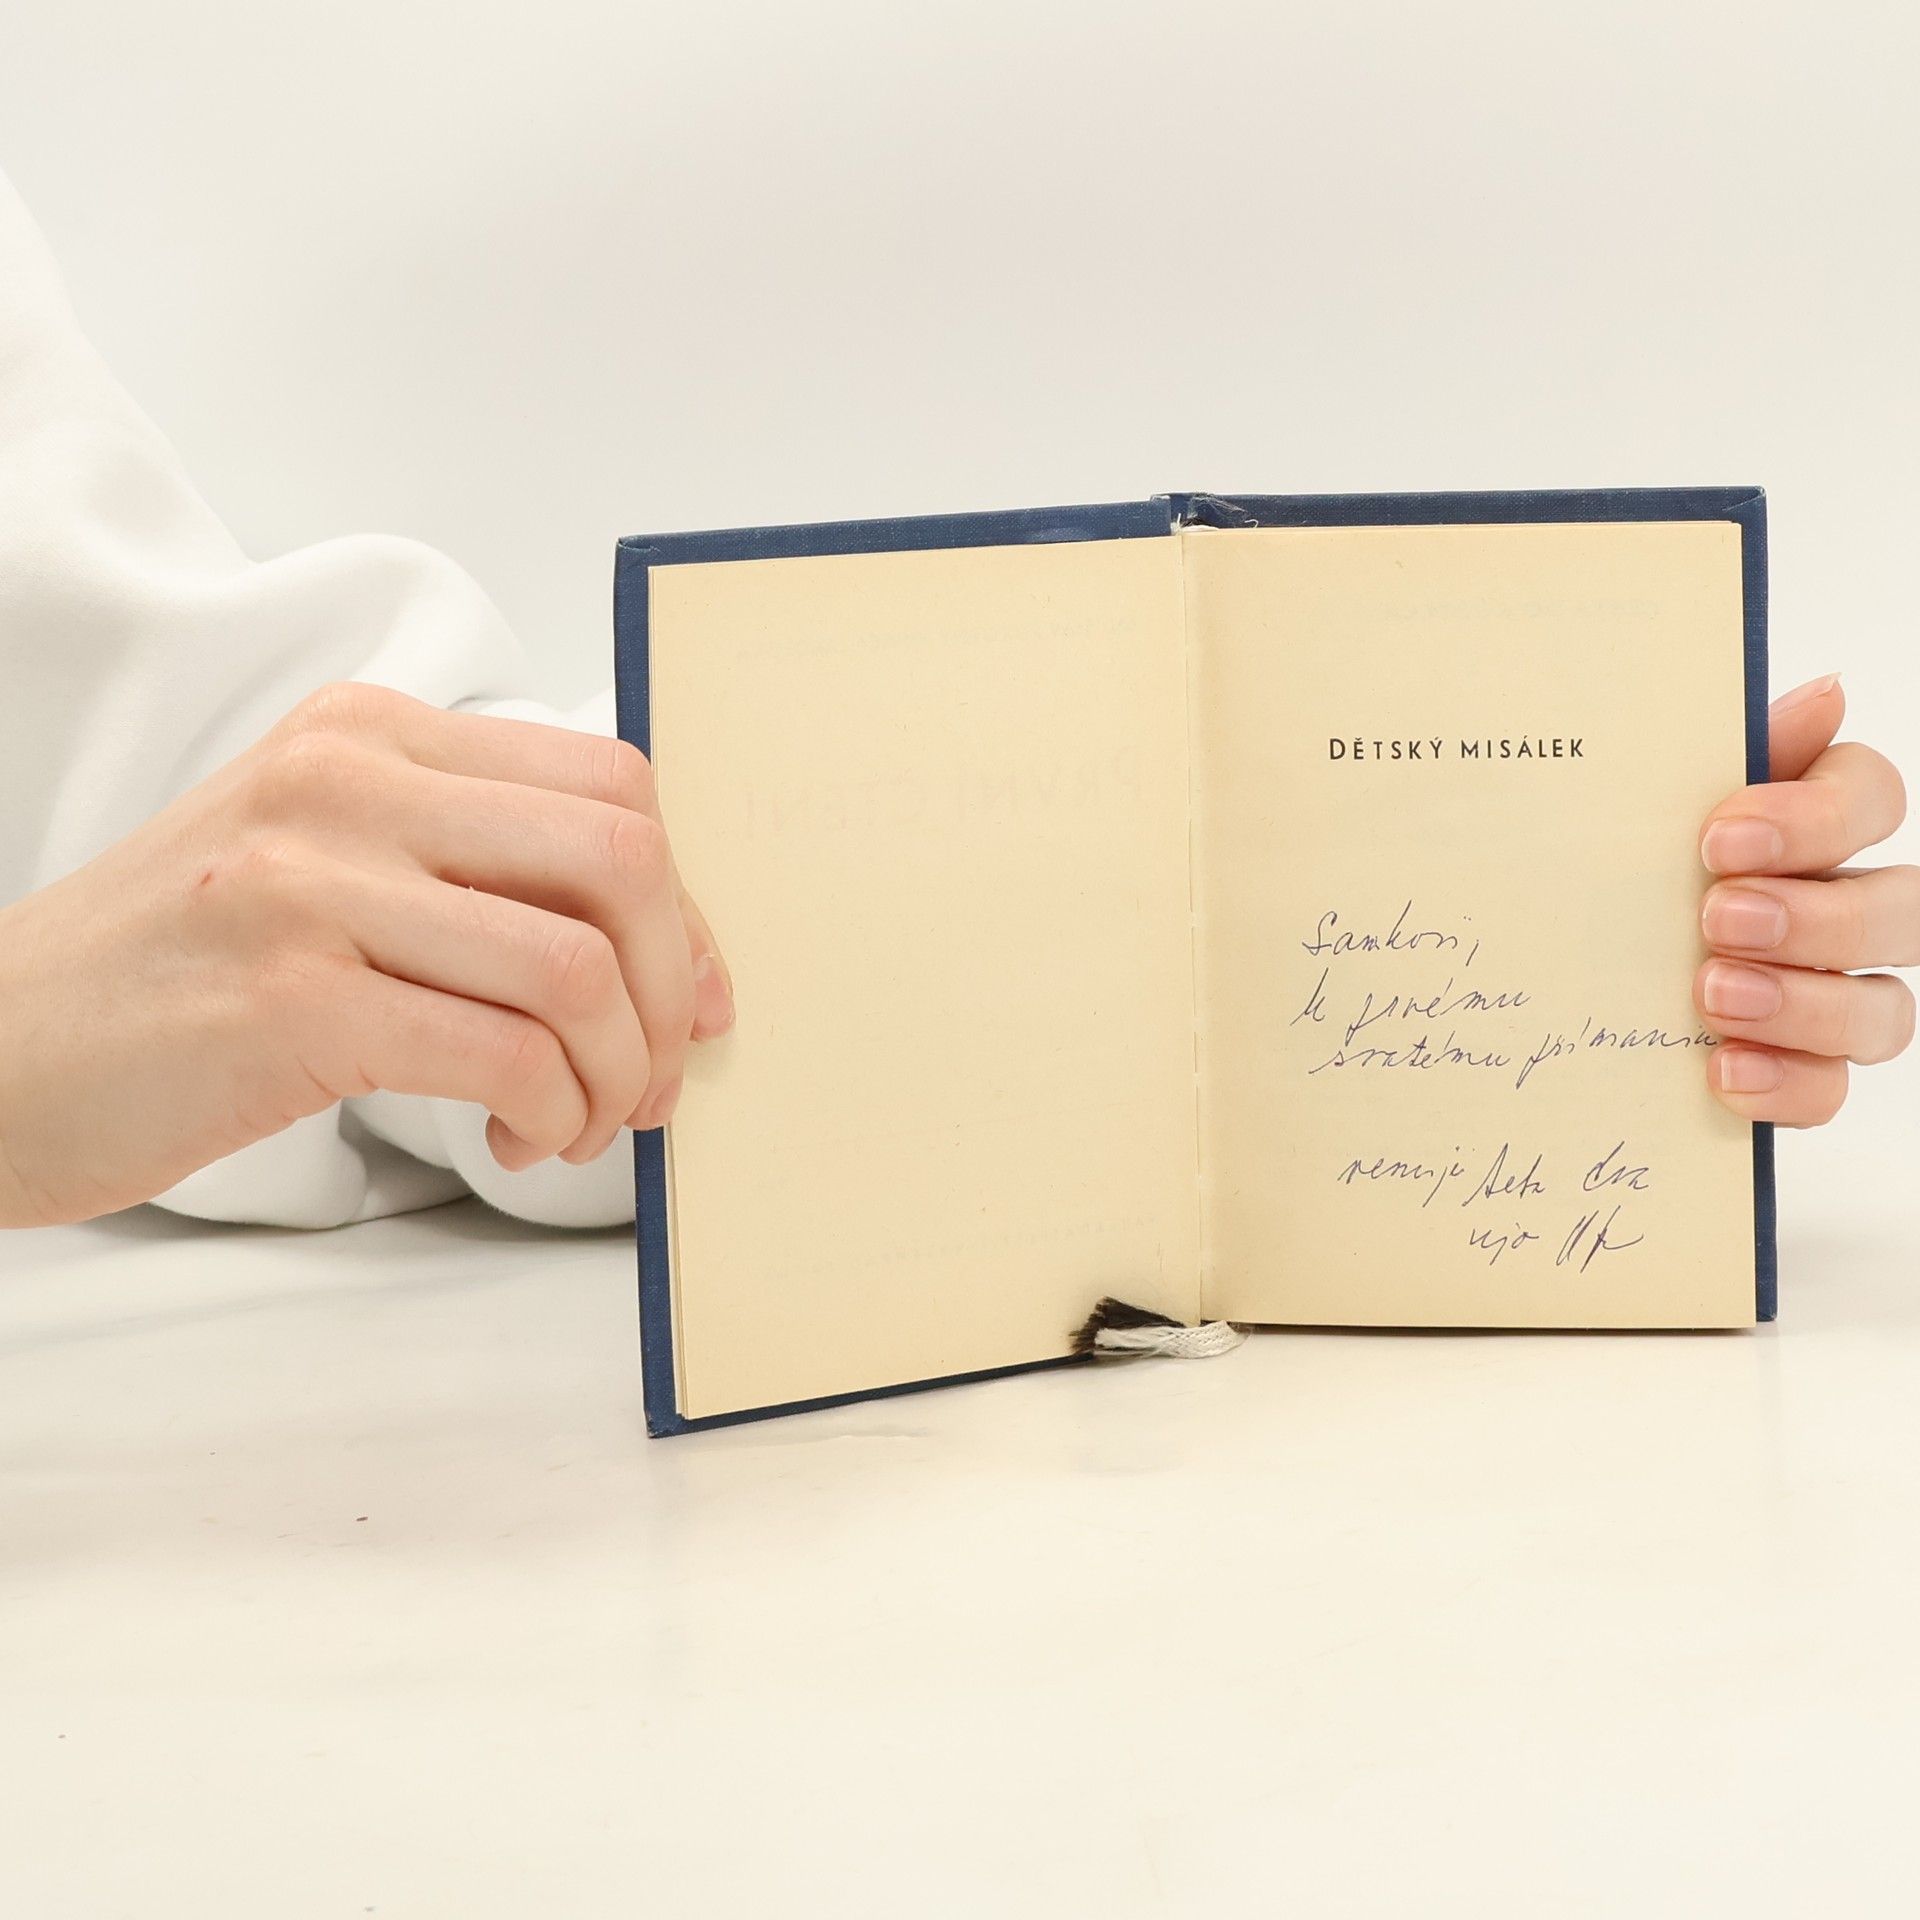 DĚTSKÝ MISÁLEK
Samkovi,
k prvému
svatému přímaniu
venuje teta Eva
ujo